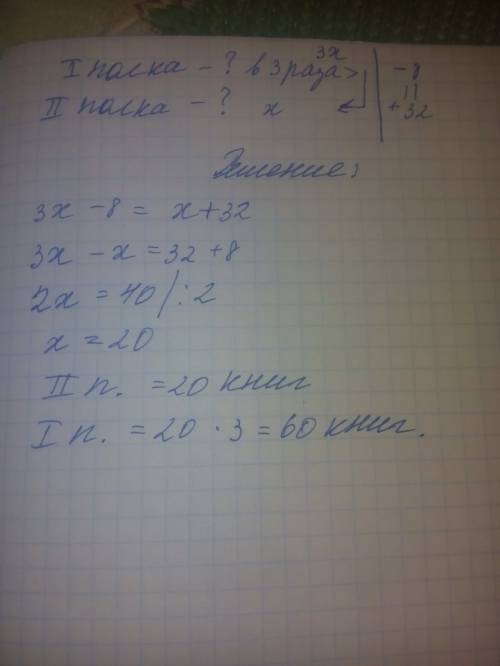 I полка - ? в 3 раза > 3x | - 8
II полка - ? x | + 32
Решение:
3x - 8 = x + 32
3x - x = 32 + 8
2x = 40 | : 2
x = 20
II п. = 20 книг
I п. = 20 · 3 = 60 книг.